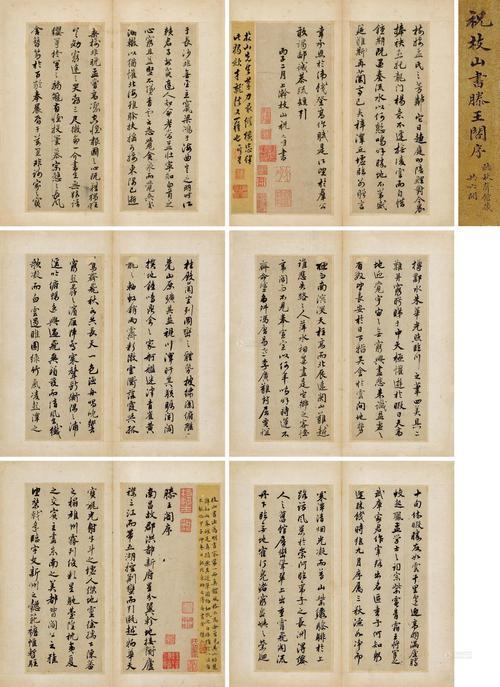 祝枝山書滕王閣序
共六開
滕王閣序
南昌故郡洪都新府星分翼軫地接衡廬
襟三江而帶五湖控蠻荊而引甌越物華天
寶龍光射牛斗之墟人傑地靈徐孺下陳蕃
之榻雄州霧列俊彩星馳臺隍枕夷夏
之交賓主盡東南之美都督閻公之雅
望棨戟遙臨宇文新州之懿範襜帷暫駐
十旬休暇勝友如雲千里逢迎高朋滿座騰
蛟起鳳孟學士之詞宗紫電青霜王將軍之
武庫家君作宰路出名區童子何知躬
逢勝餞時維九月序屬三秋潦水盡而
寒潭清煙光凝而暮山紫儼驂騑於上
路訪風景於崇阿臨帝子之長洲得仙
人之舊館層巒聳翠上出重霄飛閣流
丹下臨無地鶴汀鳧渚窮島嶼之縈迴
桂殿蘭宮列岡巒之體勢披繡闥俯雕甍
山原曠其盈視川澤紆其駭矚閭閻
撲地鐘鳴鼎食之家舸艦迷津青雀黃
龍之舳虹銷雨霽彩徹雲衢落霞與孤
鶩齊飛秋水共長天一色漁舟唱晚響
窮彭蠡之濱雁陣驚寒聲斷衡陽之浦
遙吟俯暢逸興遄飛爽籟發而清風生纖
歌凝而白雲遏睢園綠竹氣凌彭澤之
樽鄴水朱華光照臨川之筆四美具二
難并窮睇眄於中天極娛遊於暇日天高
地迥覺宇宙之無窮興盡悲來識盈虛之
有數望長安於日下指吳會於雲間地勢
極而南溟深天柱高而北辰遠關山難越
誰悲失路之人萍水相逢盡是他鄉之客懷
帝閽而不見奉宣室以何年嗚呼時運不
齊命途多舛馮唐易老李廣難封屈賈誼
於長沙非無聖主竄梁鴻於海曲豈乏明時所
賴君子安貧達人知命老當益壯寧知白首之
心窮且益堅不墜青雲之志酌貪泉而覺爽處
涸轍以猶懽北海雖賒扶搖可接東隅已
逝桑榆非晚孟嘗高潔空懷報國之心阮籍猖狂
豈效窮途之哭勃三尺微命一介書生無路請
纓等終軍之弱冠有懷投筆慕宗愨之長風舍
簪笏於百齡奉晨昏於萬里非謝家之寶
樹接孟氏之芳鄰他日趨庭叨陪鯉對今晨
捧袂喜托龍門楊意不逢撫凌雲而自惜
鍾期既遇奏流水以何慚嗚呼勝地不常盛
筵難再蘭亭已矣梓澤丘墟臨別贈言
幸承恩於偉餞登高作賦是所望於群公
敢竭鄙誠恭疏短引
丙子二月上浣枝山祝允明書